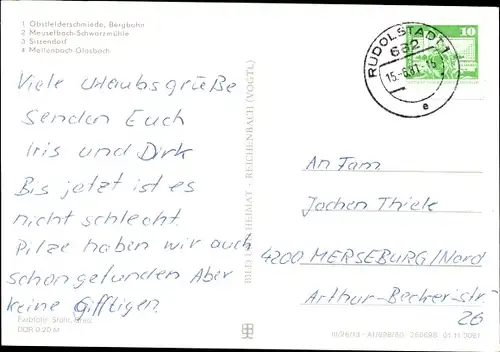 1 Obstfelderschmiede, Bergbahn
2 Meuselbach-Schwarzmühle
3 Sitzendorf
4 Mellenbach-Glasbach
Viele Urlaubsgrüße
Senden Euch
Iris und Dirk
Bis jetzt ist es
nicht schlecht.
Pilze haben wir auch
schon gefunden Aber
keine Gifftigen.
DDR 0,20 M
BILD UND HEIMAT · REICHENBACH (VOGTL)
RUDOLSTADT 1
682
e
10
An Fam.
Jochen Thiele
4200 MERSEBURG/Nord
Arthur-Becker-str.
26